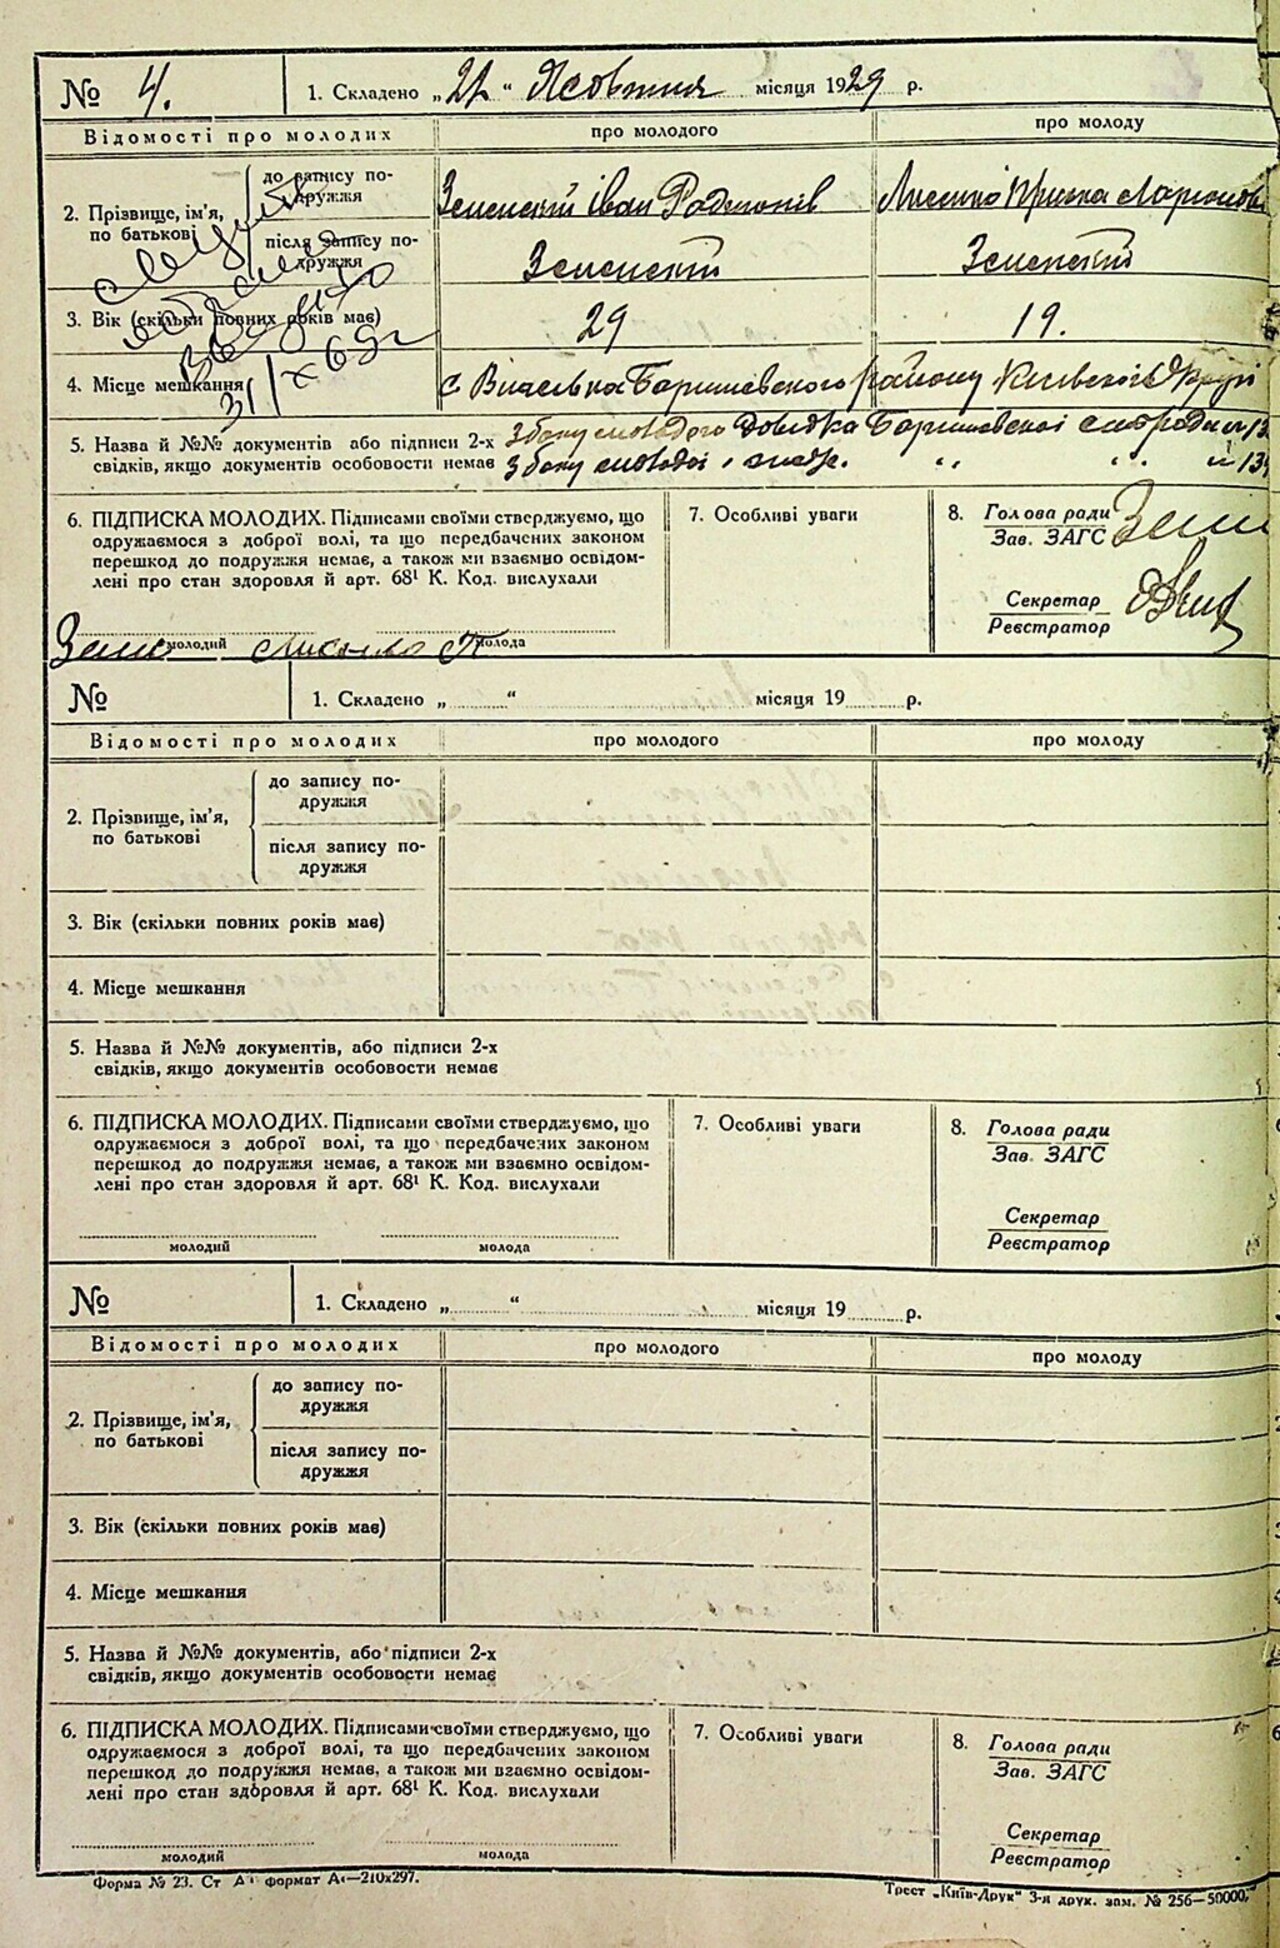 № 4. 1. Складено „ “ Жовтня місяця 1929 р.
Відомості про молодих про молодого про молоду
2. Прізвище, ім'я, по батькові
до запису по-
дружжя
Іван
після запису по-
дружжя
3. Вік (скільки повних років має) 29 19.
4. Місце мешкання с. району
5. Назва й №№ документів або підписи 2-х З боку молодого довідка
свідків, якщо документів особовости немає З боку молодої
6. ПІДПИСКА МОЛОДИХ. Підписами своїми стверджуємо, що
одружаємося з доброї волі, та що передбачених законом
перешкод до подружжя немає, а також ми взаємно освідом-
лені про стан здоровля й арт. 68¹ К. Код. вислухали
молодий молода
7. Особливі уваги
8. Голова ради
Зав. ЗАГС
Секретар
Реєстратор
№ 1. Складено „ “ місяця 19 р.
Відомості про молодих про молодого про молоду
2. Прізвище, ім'я,
по батькові
до запису по-
дружжя
після запису по-
дружжя
3. Вік (скільки повних років має)
4. Місце мешкання
5. Назва й №№ документів, або підписи 2-х
свідків, якщо документів особовости немає
6. ПІДПИСКА МОЛОДИХ. Підписами своїми стверджуємо, що
одружаємося з доброї волі, та що передбачених законом
перешкод до подружжя немає, а також ми взаємно освідом-
лені про стан здоровля й арт. 68¹ К. Код. вислухали
молодий молода
7. Особливі уваги
8. Голова ради
Зав. ЗАГС
Секретар
Реєстратор
№ 1. Складено „ “ місяця 19 р.
Відомості про молодих про молодого про молоду
2. Прізвище, ім'я,
по батькові
до запису по-
дружжя
після запису по-
дружжя
3. Вік (скільки повних років має)
4. Місце мешкання
5. Назва й №№ документів, або підписи 2-х
свідків, якщо документів особовости немає
6. ПІДПИСКА МОЛОДИХ. Підписами своїми стверджуємо, що
одружаємося з доброї волі, та що передбачених законом
перешкод до подружжя немає, а також ми взаємно освідом-
лені про стан здоровля й арт. 68¹ К. Код. вислухали
молодий молода
7. Особливі уваги
8. Голова ради
Зав. ЗАГС
Секретар
Реєстратор
Форма № 23. Ст А⁴ формат А⁴—210х297.
Трест „Київ-Друк“ 3-я друк. зам. № 256—50000.